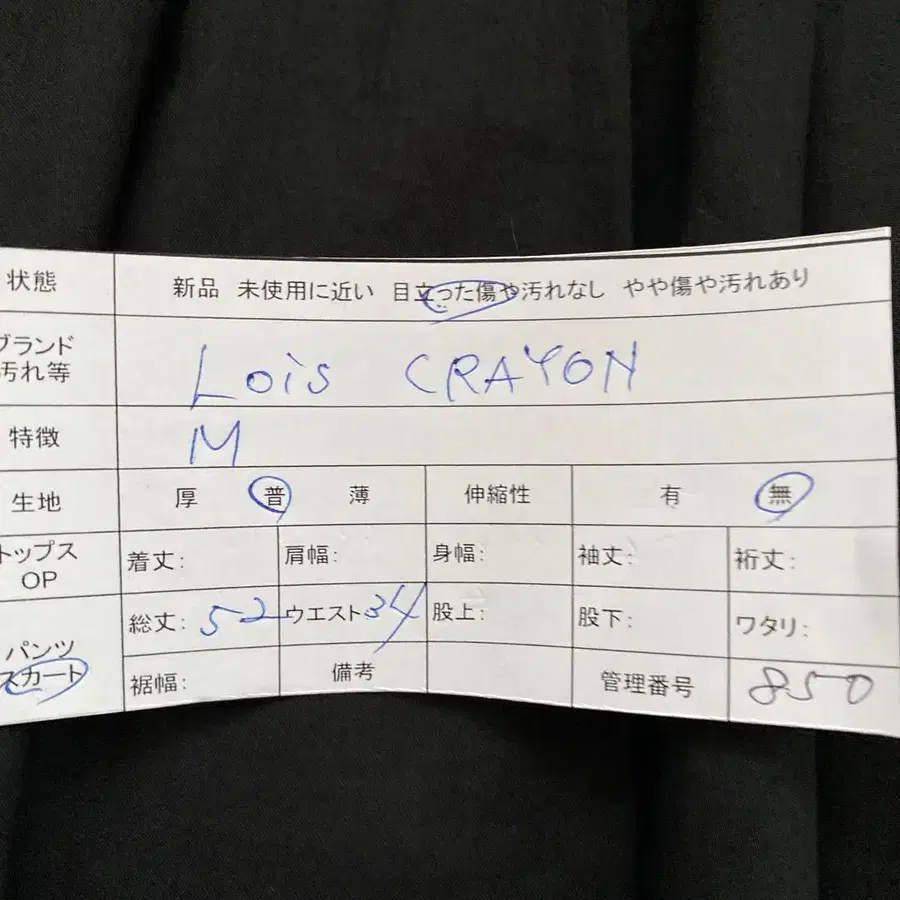 状態 新品 未使用に近い 目立った傷や汚れなし やや傷や汚れあり
ブランド
汚れ等 Lois CRAYON
特徴 M
生地 厚 普 薄 伸縮性 有 無
トップス
OP 着丈: 肩幅: 身幅: 袖丈: 裄丈:
パンツ
スカート 総丈: 52 ウエスト34 股上: 股下: ワタリ:
裾幅: 備考 管理番号 850